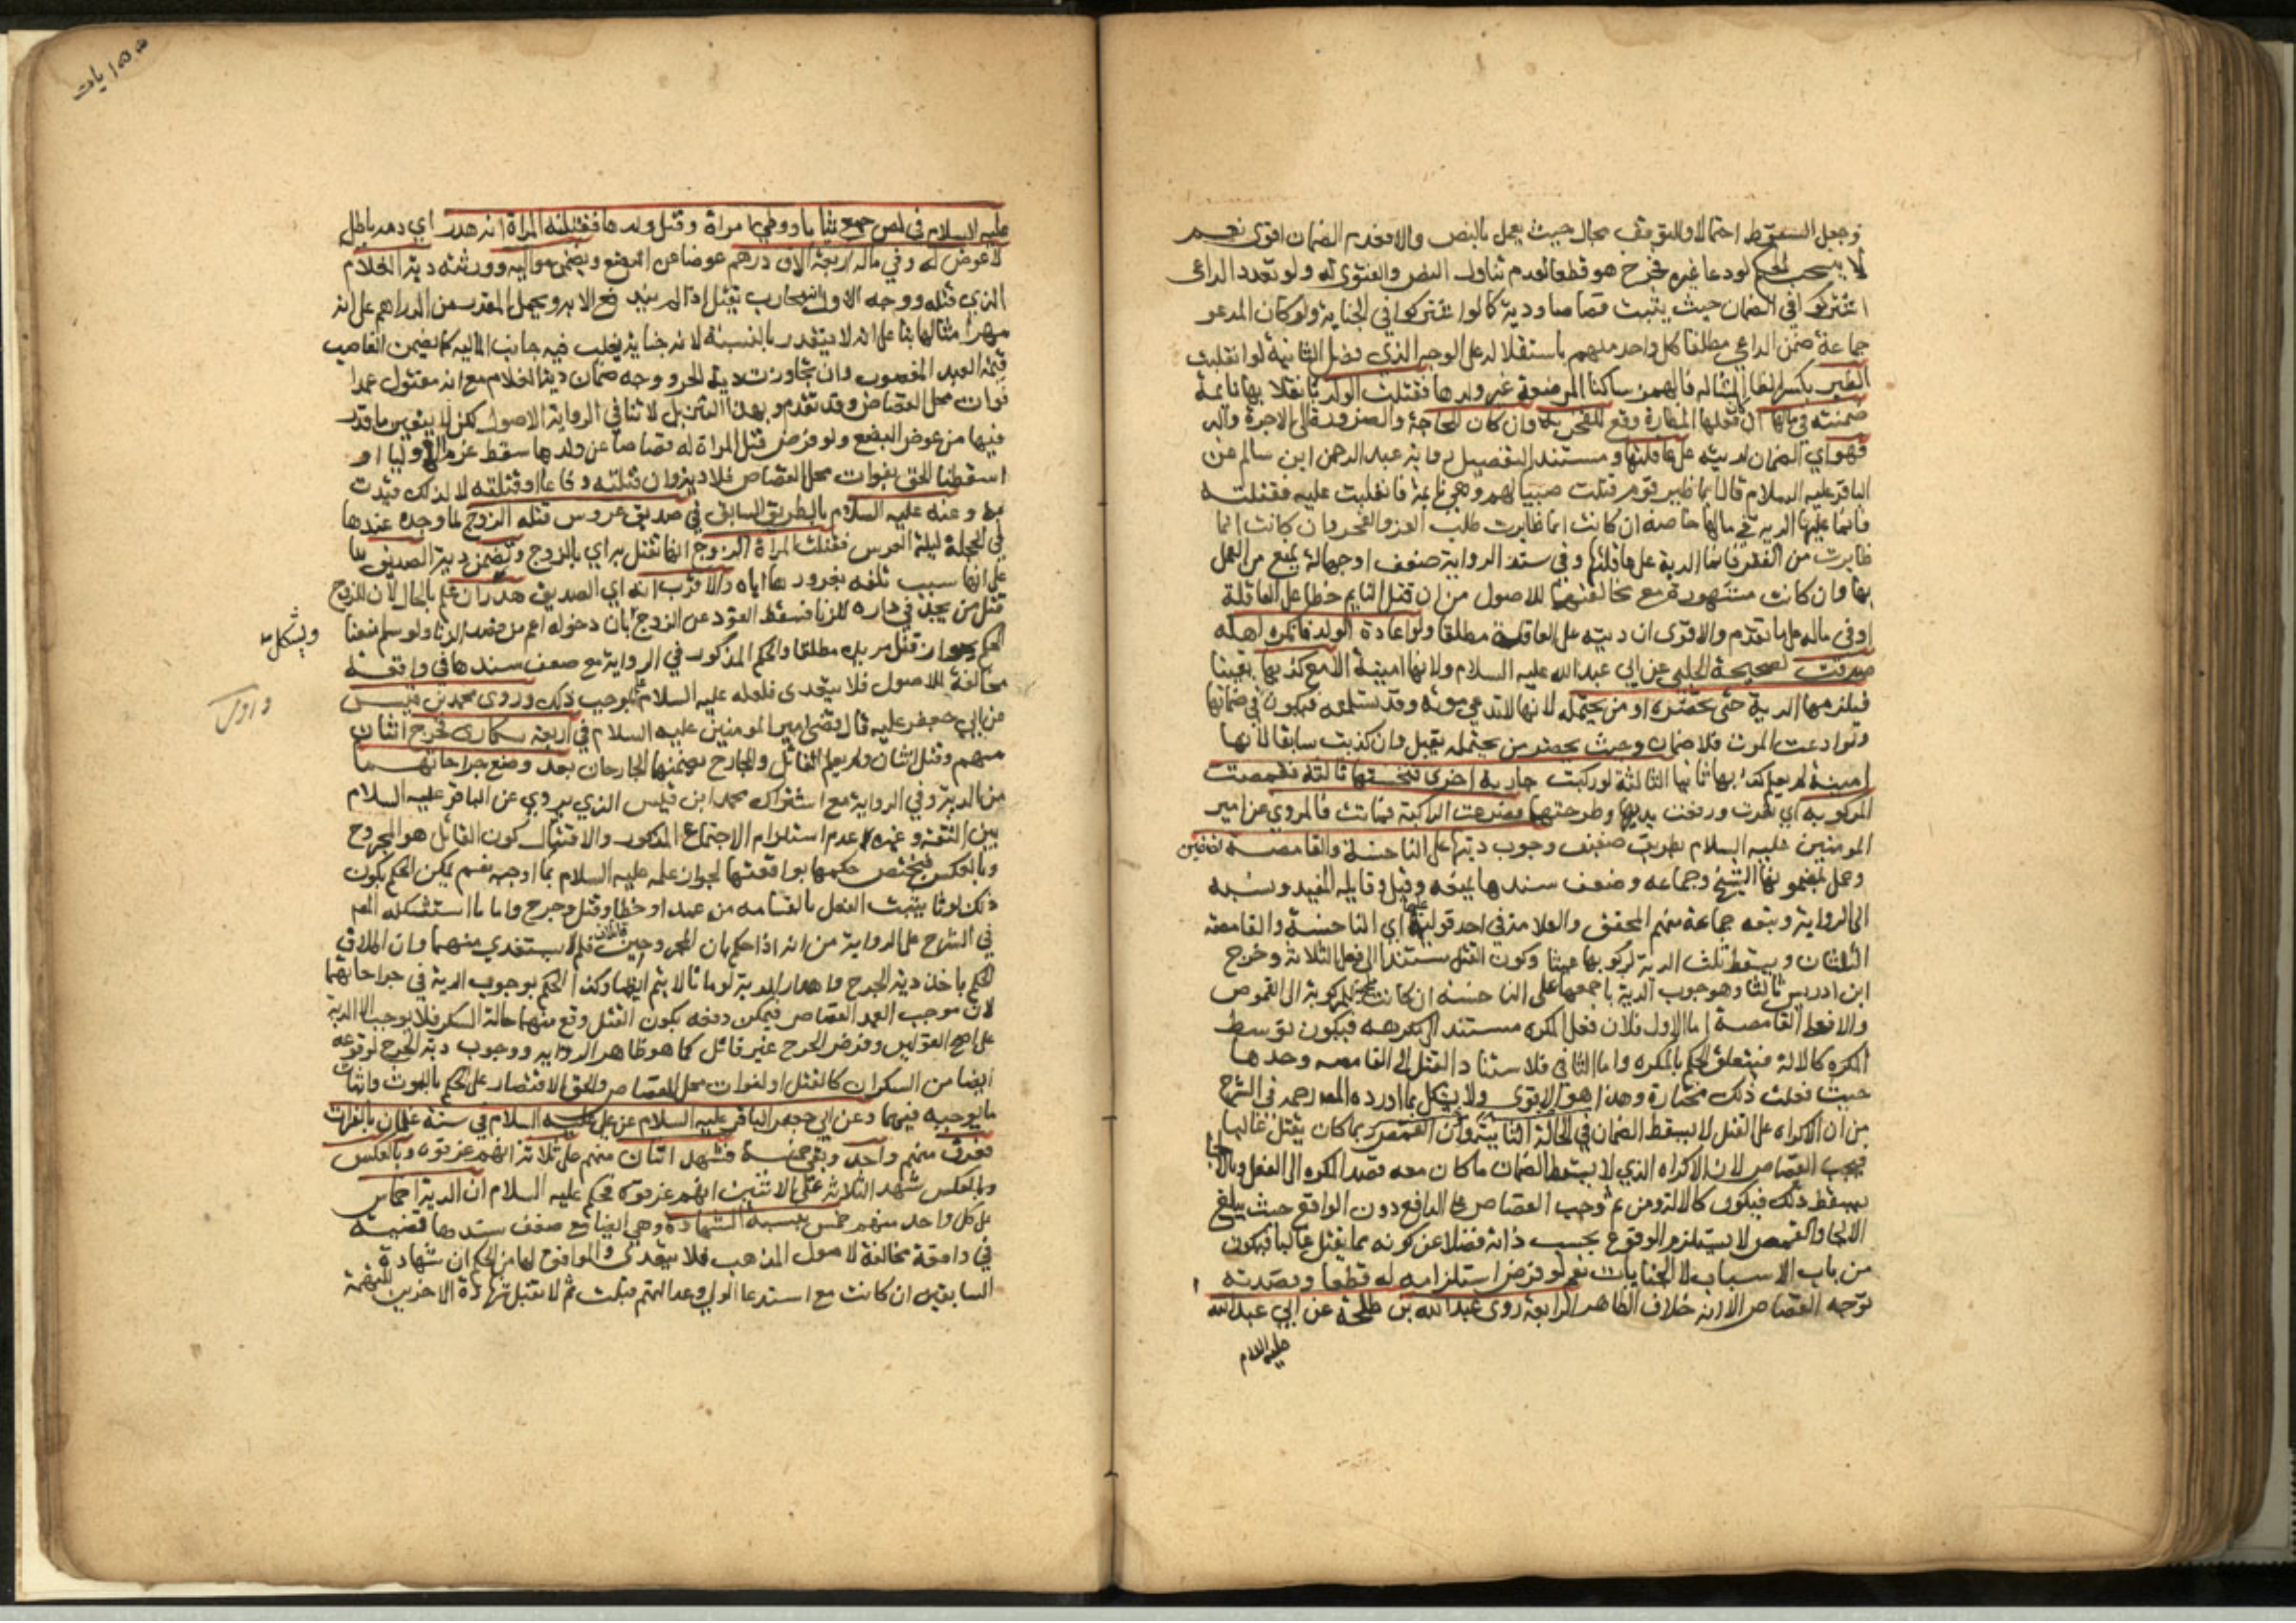 وجعل السقوط احتمالا والتوقف بحال حيث يعمل بالنص والا فعدم الضمان اقوى نعم
لا ينسحب الحكم لو دعا غيره فخرج هو قطعا لعدم تناول النص والفتوى له ولو تعدد الداعى
اشتركوا في الضمان حيث يثبت قصاصا ودية كما لو اشتركوا في الجناية ولو كان المدعو
جماعة ضمن الداعي مطلقا كل واحد منهم باستقلاله على الوجه الذي فصل الثانية لو انقلبت
الظئر بكسر الظاء المشالة فالهمز ساكنا المرضعة غير ولدها فقتلت الولد بانقلابها نائمة
ضمنته في مالها ان فعلها المظارة وقع للفخر به وان كان للحاجة والضرورة الى الاجرة والبر
فهو اي الضمان لديته على عاقلتها ومستند التفصيل رواية عبد الرحمن ابن سالم عن
الباقر عليه السلام قال ايما ظئر قوم قتلت صبيا لهم وهي نائمة فانقلبت عليه فقتلته
فانما عليها الدية في مالها خاصة ان كانت انما ظايرت طلب العز والفخر وان كانت انما
ظايرت من الفقر فانما الدية على عاقلتها وفي سند الرواية ضعف او جهالة يمنع من العمل
بها وان كانت مشهورة مع مخالفتها للاصول من ان قتل النايم خطا على العاقلة
او في ماله على ما تقدم والاقوى ان ديته على العاقلة مطلقا ولو اعادة الولد فانكره اهله
صدقت لصحيحة الحلبي عن ابي عبد الله عليه السلام ولانها امينة الا مع كذبها يقينا
فيلزمها الدية حتى تحضره او من يحتمله لانها لا تدعي موته وقد تسلمته فيكون في ضمانها
ولو ادعت الموت فلا ضمان وحيث يحضر من يحتمله يقبل وان كذبت سابقا لانها
امينة لم يعلم كذبها ثانيا الثالثة لو ركبت جارية اخرى فنخستها ثالثة فقمصت
المركوبة اي نفرت ورفعت يديها وطرحتهما فصرعت الراكبة فماتت فالمروي عن امير
المومنين عليه السلام بطريق ضعيف وجوب ديتها على الناخسة والقامصة نصفين
وعمل بمضمونها الشيخ وجماعه وضعف سندها يمنعه وقيل وقايله المفيد ونسبه
الى الرواية وتبعه جماعة منهم المحقق والعلامة في احد قوليه عليهما اي الناخسة والقامصة
الثلثان ويسقط ثلث الدية لركوبها عبثا وكون القتل مستندا الى فعل الثلاثة وخرج
ابن ادريس ثالثا وهو وجوب الدية باجمعها على الناخسة ان كانت ملجئة للمركوبة الى القموص
والا فعلى القامصة اما الاول فلان فعل المكره مستند الى مكرهه فيكون توسط
المكره كالالة فيتعلق الحكم بالمكره واما الثاني فلاستناد القتل الى القامصه وحدها
حيث فعلت ذلك مختارة وهذا هو الاقوى ولا يشكل بما اورده المص رحمه في الشرح
من ان الاكراه على القتل لا يسقط الضمان في الحالة الثانية وان القمص ربما كان يقتل غالبا
فيجب القصاص لان الاكراه الذي لا يسقط الضمان ما كان معه قصد المكره الى الفعل وبالالجا
يسقط ذلك فيكون كالالة ومن ثم وجب القصاص على الدافع دون الواقع حيث يبلغ
الالجا والقمص لا يستلزم الوقوع بحسب ذاته فضلا عن كونه مما يقتل غالبا فيكون
من باب الاسباب لا الجنايات نعم لو فرض استلزامه له قطعا وقصدته
توجه القصاص الا انه خلاف الظاهر الرابعة روى عبد الله بن طلحة عن ابي عبد الله
عليه السلام
عليه السلام في لص جمع ثيابا ووطي امراة وقتل ولدها فقتلته المراة انه هدر اي دمه باطل
لا عوض له وفي ماله اربعة الاف درهم عوضا عن البضع ويضمن مواليه وورثته دية الغلام
الذي قتله ووجه الاول انه محارب يقتل اذا لم يندفع الا به ويحمل المقدر من الدراهم على انه
مهر امثالها بنا على انه لا يتقدر بالسنة لانه جناية يغلب فيه جانب المالية كما يضمن الغاصب
قيمة العبد المغصوب وان تجاوزت دية الحر ووجه ضمان دية الغلام مع انه مقتول عمدا
فوات محل القصاص وقد تقدم وبهذا التنزيل لا تنافي الرواية الاصول لكن لا يتعين ما قدر
فيها من عوض البضع ولو فرض قتل المراة له قصاصا عن ولدها سقط غرم الاوليا او
اسقطنا الحق بفوات محل القصاص فلا دية وان قتلته دفاعا او قتلته لا لذلك قيدت
به وعنه عليه السلام بالطريق السابق في صديق عروس قتله الزوج لما وجده عندها
في الحجلة ليلة العرس فقتلت المراة الزوج انها تقتل به اي بالزوج وتضمن دية الصديق بنا
على انها سبب تلفه بغرورها اياه والاقرب انه اي الصديق هدر ان علم بالحال لان للزوج
قتل من يجد في داره للزنا فسقط القود عن الزوج بان دخوله اعم من قصد الزنا ولو سلم منعنا
الحكم بجواز قتل مريده مطلقا والحكم المذكور في الرواية مع ضعف سندها في واقعة
مخالفة للاصول فلا يتعدى فلعله عليه السلام علم بموجب ذلك وروى محمد بن قيس
عن ابي جعفر عليه قال قضى امير المومنين عليه السلام في اربعة سكارى فجرح اثنان
منهم وقتل اثنان ولم يعلم القاتل والجارح يضمنها الجارحان بعد وضع جراحاتهما
من الدية وفي الرواية مع اشتراك محمد ابن قيس الذي يروي عن الباقر عليه السلام
بين الثقة وغيره عدم استلزام الاجتماع المذكور والاقتتال كون القاتل هو المجروح
وبالعكس فيختص حكمها بواقعتها لجواز علمه عليه السلام بما اوجبه نعم يمكن الحكم بكون
ذلك لوثا يثبت الفعل بالقسامه من عمد او خطا وقتل وجرح واما ما استشكله المص
في الشرح على الرواية من انه اذا حكم بان المجروحين قاتلان فلم لا يستقدي منهما وان اطلاق
الحكم باخذ دية الجرح واهدار الدية لو ماتا لا يتم ايضا وكذا الحكم بوجوب الدية في جراحاتهما
لان موجب العمد القصاص فيمكن دفعه بكون القتل وقع منهما حالة السكر فلا يوجب الا الدية
على اصح القولين وفرض الجرح غير قاتل كما هو ظاهر الرواية ووجوب دية الجرح لوقوعه
ايضا من السكران كالقتل او لفوات محل القصاص والحق الاقتصار على الحكم باللوث واثبات
ما يوجبه فيهما وعن ابي جعفر الباقر عليه السلام عن علي عليه السلام في ستة غلمان بالفرات
فغرق منهم واحد وبقي خمسة فشهد اثنان منهم على ثلاثة انهم غرقوه وبالعكس
وبالعكس شهد الثلاثة على الاثنين انهم غرقوه فحكم عليه السلام ان الدية اخماس
على كل واحد منهم خمس بنسبة الشهادة وهي ايضا مع ضعف سندها قضية
في واقعة مخالفة لاصول المذهب فلا يتعدى والموافق لها من الحكم ان شهادة
السابقين ان كانت مع استدعا الولي وعدالتهم قبلت ثم لا تقبل شهادة الاخرين للتهمة
ويشكل